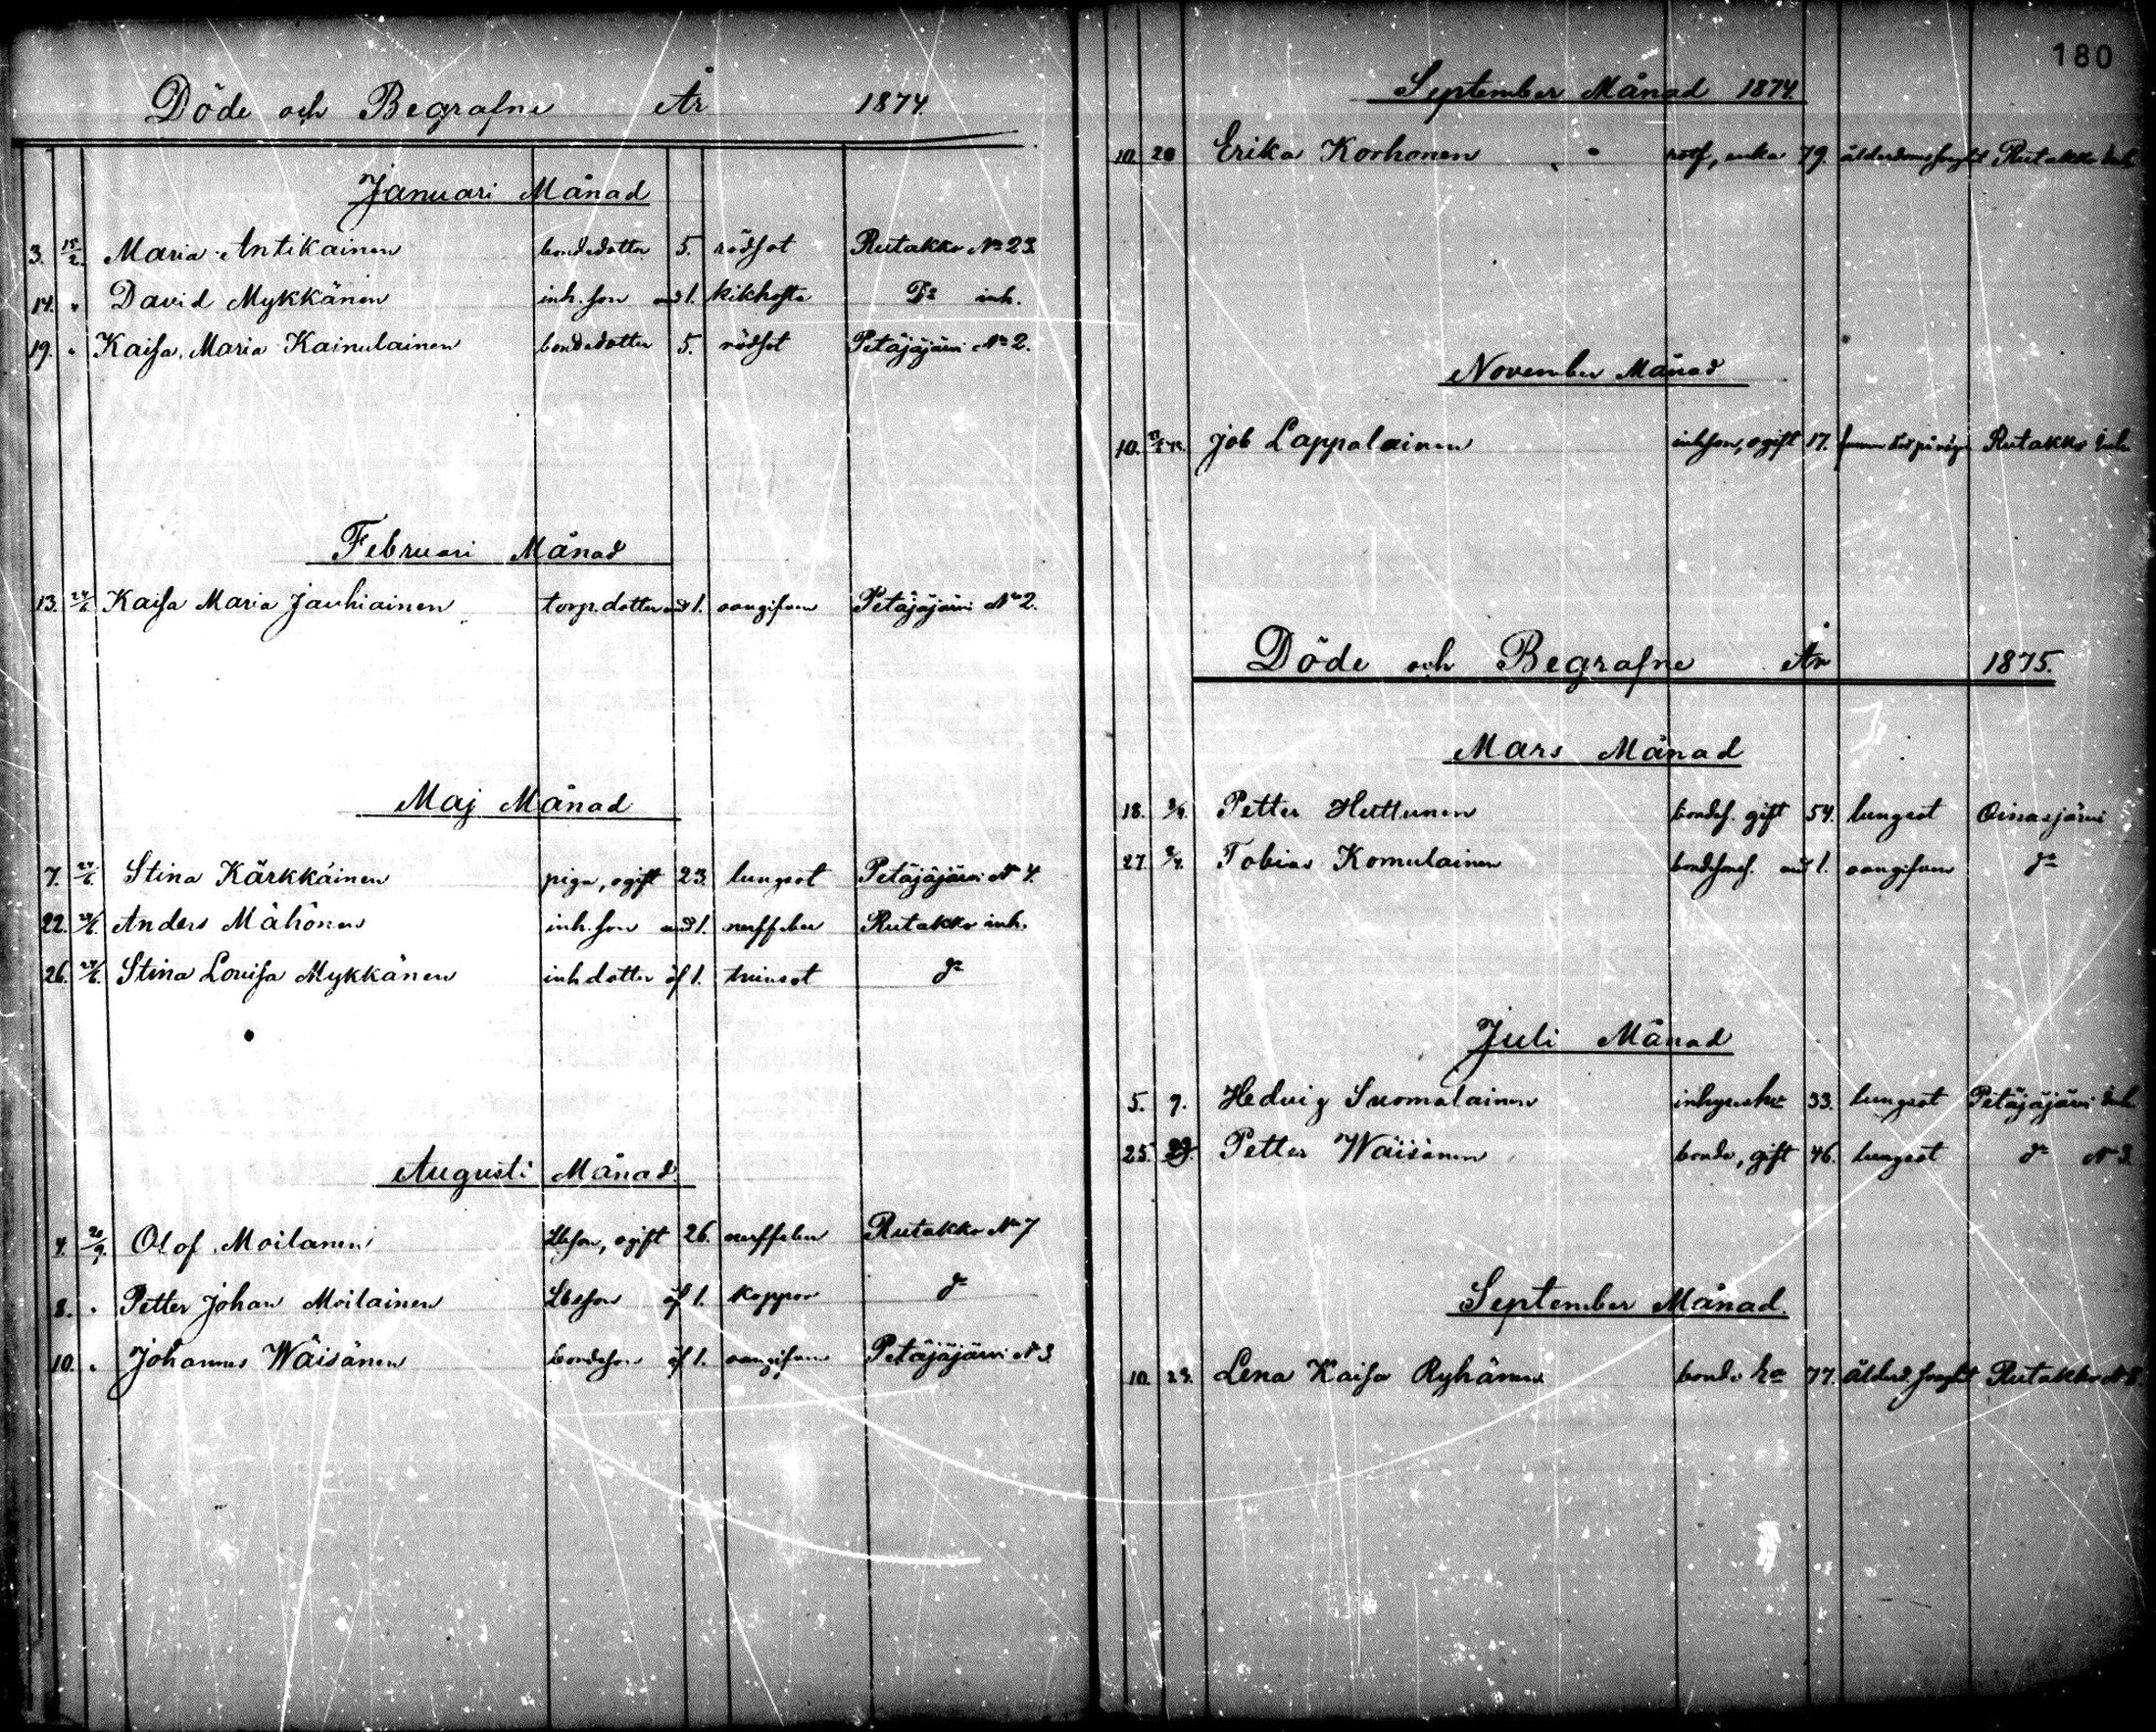 Döde och Begrafne År 1874.
Januari Månad
3. 15/2. Maria Antikainen bondedotter 5. rödsot Rutakko No 23.
14. " David Mykkänen inh. son und 1. kikhosta Do inh.
19. " Kaisa Maria Kainulainen bondedotter 5. rödsot Petäjäjärvi No 2.
Februari Månad
13. Kaisa Maria Jauhiainen torp. dotter und 1. oangifven Petäjäjärvi No 2.
Maj Månad
7. 24/6. Stina Kärkkäinen piga, ogift 23. lungsot Petäjäjärvi No 4.
22. 24/6. Anders Mähönen inh. son und 1. nerffeber Rutakko inh.
26. 24/6. Stina Louisa Mykkänen inh dotter öf 1. tvinsot do
Augusti Månad.
4. 20/9. Olof Moilanen ogift 26. nerffeber Rutakko No 7
8. " Petter Johan Moilainen öf 1. koppor do
10. " Johannes Wäisänen bondeson öf 1. oangifven Petäjäjärvi No 3
180
September Månad 1874.
10. 20 Erika Korhonen enka 79. ålderdomssvaghet Rutakko Inh.
November Månad
10. Job Lappalainen inhson, ogift 17. Rutakko Inh.
Döde och Begrafne År 1875.
Mars Månad
18. Petter Huttunen bondes. gift 54. lungsot Oinasjärvi
27. Tobias Komulainen und 1. oangifven do
Juli Månad
5. 9. Hedvig Suomalainen 33. lungsot Petäjäjärvi Inh.
25. Petter Wäisänen bonde, gift 46. lungsot do No 3.
September Månad.
10. 23. Lena Kaisa Ryhänen bonde ha 77. ålderd. svaghet Rutakko No 8.